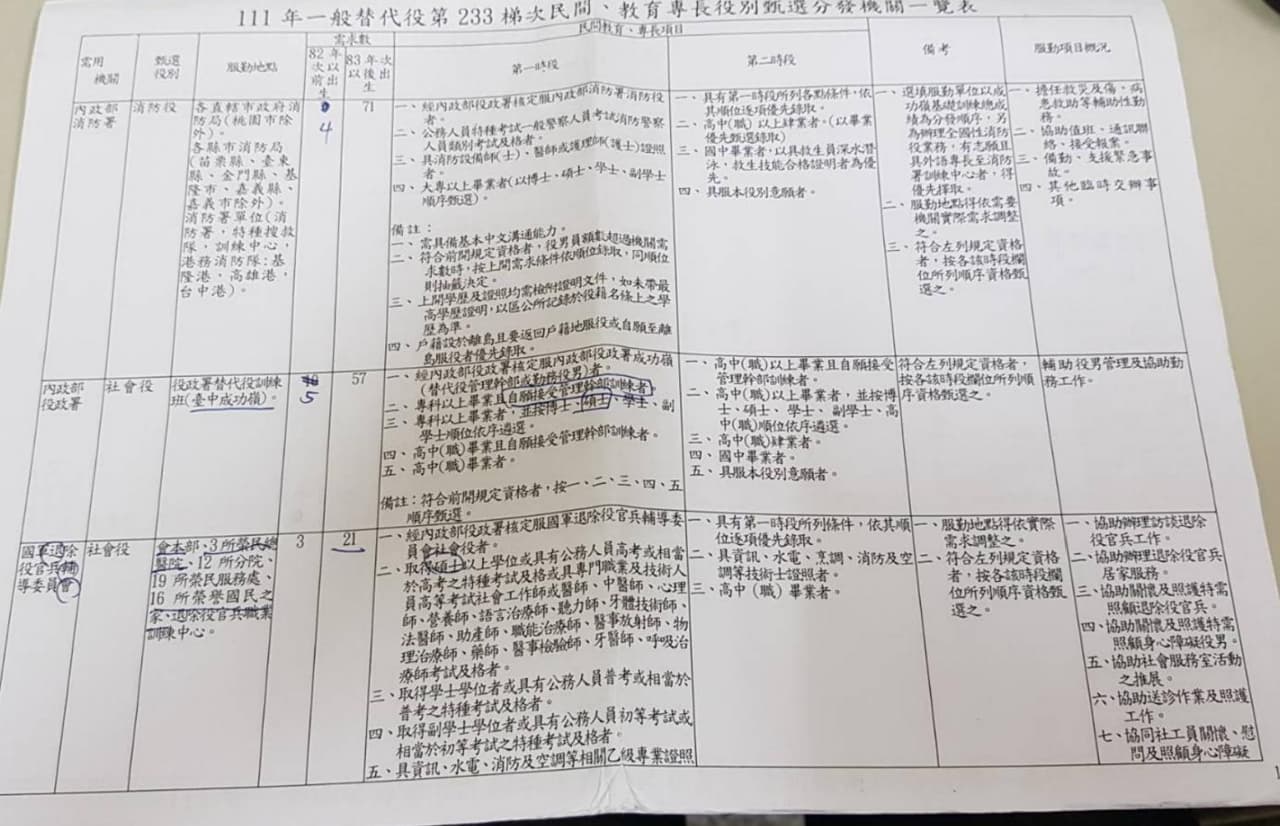 111 年一般替代役第 233 梯次民間、教育專長役別甄選分發機關一覽表
需用
機關
甄選
役別
服勤地點
需求數
82 年
次以
前出
生
83 年次
以後出
生
民間教育、專長項目
第一時段
第二時段
備考
服勤項目概況
內政部
消防署
消防役
各直轄市政府消
防局(桃園市除
外)。
各縣市消防局
(苗栗縣、臺東
縣、金門縣、基
隆市、嘉義縣、
嘉義市除外)。
消防署單位(消
防署,特種搜救
隊,訓練中心,
港務消防隊:基
隆港,高雄港,
台中港)。
4
71
一、經內政部役政署核定服內政部消防署消防役
者。
二、公務人員特種考試一般警察人員考試消防警察
人員類別考試及格者。
三、具消防設備師(士)、醫師或護理師(護士)證照
者。
四、大專以上畢業者(以博士、碩士、學士、副學士
順序甄選)。
備註:
一、需具備基本中文溝通能力。
二、符合前開規定資格者,役男員額數超過機關需
求數時,按上開需求條件依順位錄取,同順位
則抽籤決定。
三、上開學歷及證照均需檢附證明文件,如未帶最
高學歷證明,以區公所記錄於役籍名條上之學
歷為準。
四、戶籍設於離島且要返回戶籍地服役或自願至離
島服役者優先錄取。
一、具有第一時段所列各點條件,依
其順位逐項優先錄取。
二、高中(職)以上肄業者。(以畢業
優先甄選錄取)
三、國中畢業者,以具救生員深水潛
水、救生技能合格證明者為優
先。
四、具服本役別意願者。
一、選填服勤單位以成
功嶺基礎訓練總成
績為分發順序,另
為辦理全國性消防
役業務,有志願且
具外語專長至消防
署訓練中心者,得
優先擇取。
二、服勤地點得依需要
機關實際需求調整
之。
三、符合左列規定資格
者,按各該時段欄
位所列順序資格甄
選之。
一、擔任救災及傷、病
患救助等輔助性勤
務。
二、協助值班、通訊聯
絡、接受報案。
三、備勤、支援緊急事
故。
四、其他臨時交辦事
項。
內政部
役政署
社會役
役政署替代役訓練
班(臺中成功嶺)。
5
57
一、經內政部役政署核定服內政部役政署成功嶺
(替代役管理幹部或勤務役男)者。
二、專科以上畢業且自願接受管理幹部訓練者。
三、專科以上畢業者,並按博士、碩士、學士、副
學士順位依序遴選。
四、高中(職)畢業且自願接受管理幹部訓練者。
五、高中(職)畢業者。
備註:符合前開規定資格者,按一、二、三、四、五
順序甄選。
一、高中(職)以上畢業且自願接受
管理幹部訓練者。
二、高中(職)以上畢業者,並按博
士、碩士、學士、副學士、高
中(職)順位依序遴選。
三、高中(職)肄業者。
四、國中畢業者。
五、具服本役別意願者。
符合左列規定資格者,
按各該時段欄位所列順
序資格甄選之。
輔助役男管理及協助勤
務工作。
國軍退除
役官兵輔
導委員會
社會役
會本部、3 所榮民總
醫院、12 所分院、
19 所榮民服務處、
16 所榮譽國民之
家、退除役官兵職業
訓練中心。
3
21
一、經內政部役政署核定服國軍退除役官兵輔導委
員會社會役者。
二、取得碩士以上學位或具有公務人員高考或相當
於高考之特種考試及格或具專門職業及技術人
員高等考試社會工作師或醫師、中醫師、心理
師、營養師、語言治療師、聽力師、牙體技術師、
法醫師、助產師、職能治療師、醫事放射師、物
理治療師、藥師、醫事檢驗師、牙醫師、呼吸治
療師考試及格者。
三、取得學士學位者或具有公務人員普考或相當於
普考之特種考試及格者。
四、取得副學士學位者或具有公務人員初等考試或
相當於初等考試之特種考試及格者。
五、具資訊、水電、消防及空調等相關乙級專業證照
一、具有第一時段所列條件,依其順
位逐項優先錄取。
二、具資訊、水電、烹調、消防及空
調等技術士證照者。
三、高中(職)畢業者。
一、服勤地點得依實際
需求調整之。
二、符合左列規定資格
者,按各該時段欄
位所列順序資格甄
選之。
一、協助辦理訪談退除
役官兵工作。
二、協助辦理退除役官兵
居家服務。
三、協助關懷及照護特需
照顧退除役官兵。
四、協助關懷及照護特需
照顧身心障礙役男。
五、協助社會服務室活動
之推展。
六、協助送診作業及照護
工作。
七、協同社工員關懷、慰
問及照顧身心障礙
1